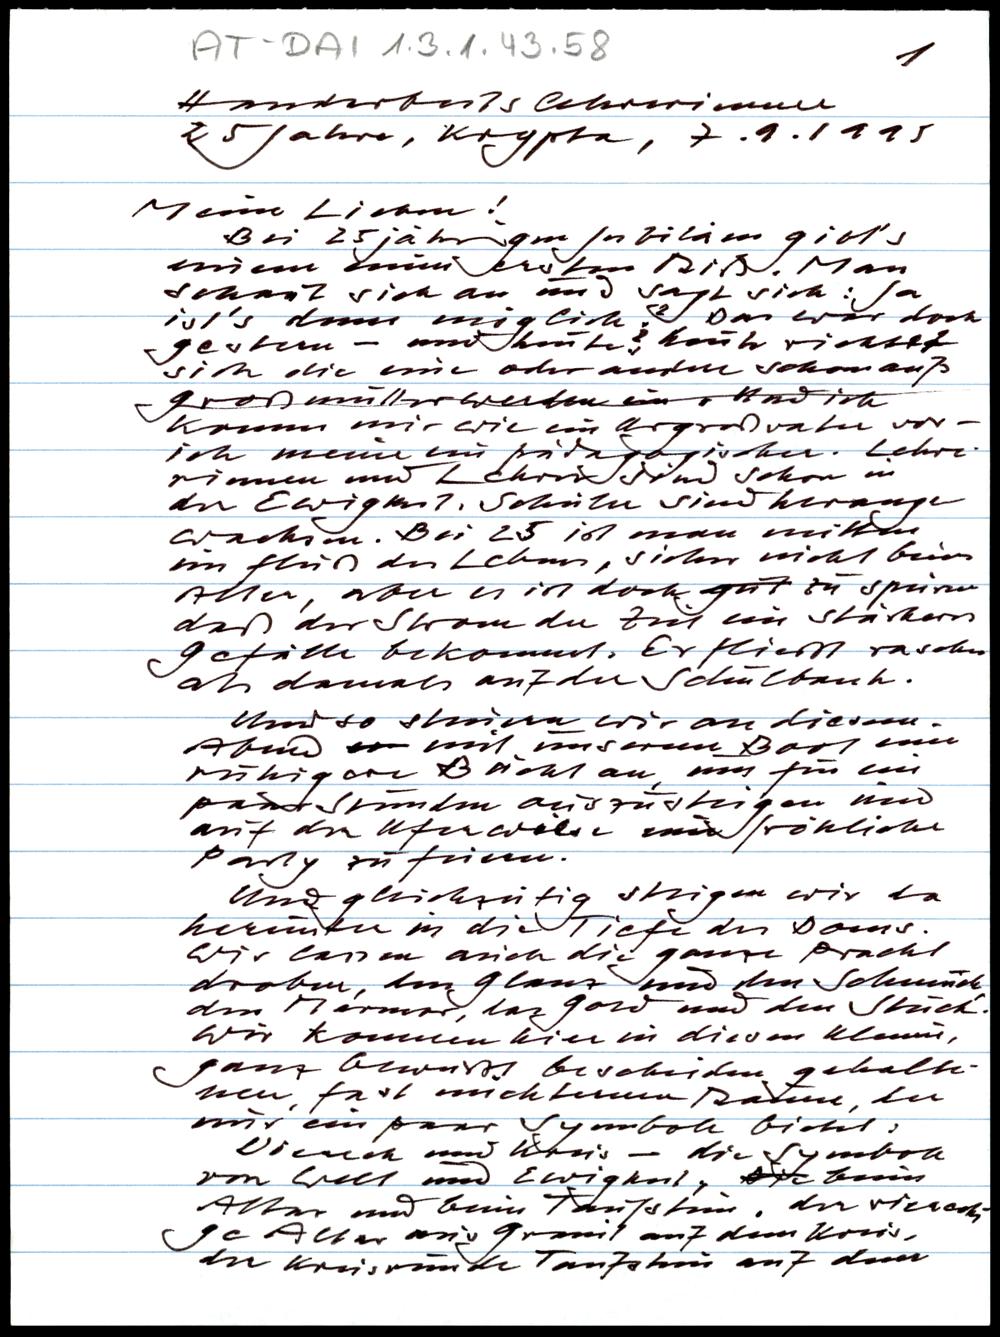 AT-DAI 1.3.1.43.58
1
Handarbeitslehrerinnen
25 Jahre, Krypta, 7.9.1995
Meine Lieben!
Bei 25jährigem Jubiläum gibt's
einem einen ersten Riß. Man
schaut sich an und sagt sich: Ja
ist's denn möglich? Das war doch
gestern – und heute? heute richtet
sich die eine oder andere schon aufs
Großmutterwerden ein. Und ich
komme mir wie ein Urgroßvater vor –
ich meine ein pädagogischer. Lehre-
rinnen und Lehrer sind schon in
der Ewigkeit. Schüler sind herange
wachsen. Bei 25 ist man mitten
im Fluß des Lebens, sicher nicht beim
Alter, aber es ist doch gut zu spüren
daß der Strom der Zeit ein stärkeres
Gefälle bekommt. Er fließt rascher
als damals auf der Schulbank.
Und so steuern wir an diesem
Abend mit unserem Boot eine
ruhigere Bucht an, um für ein
paar Stunden auszusteigen und
auf der Uferwiese eine fröhliche
Party zu feiern.
Und gleichzeitig steigen wir da
herunter in die Tiefe des Doms.
Wir lassen auch die ganze Pracht
droben, den Glanz und den Schmuck
den Marmor, das Gold und den Stuck.
Wir kommen hier in diesen kleinen,
ganz bewußt bescheiden gehalte-
nen, fast nüchternen Raum, der
nur ein paar Symbole bietet:
Viereck und Kreis – die Symbole
von Welt und Ewigkeit, beim
Altar und beim Taufstein. der viereck-
ge Altar aus Granit auf dem Kreis,
der kreisrunde Taufstein auf dem